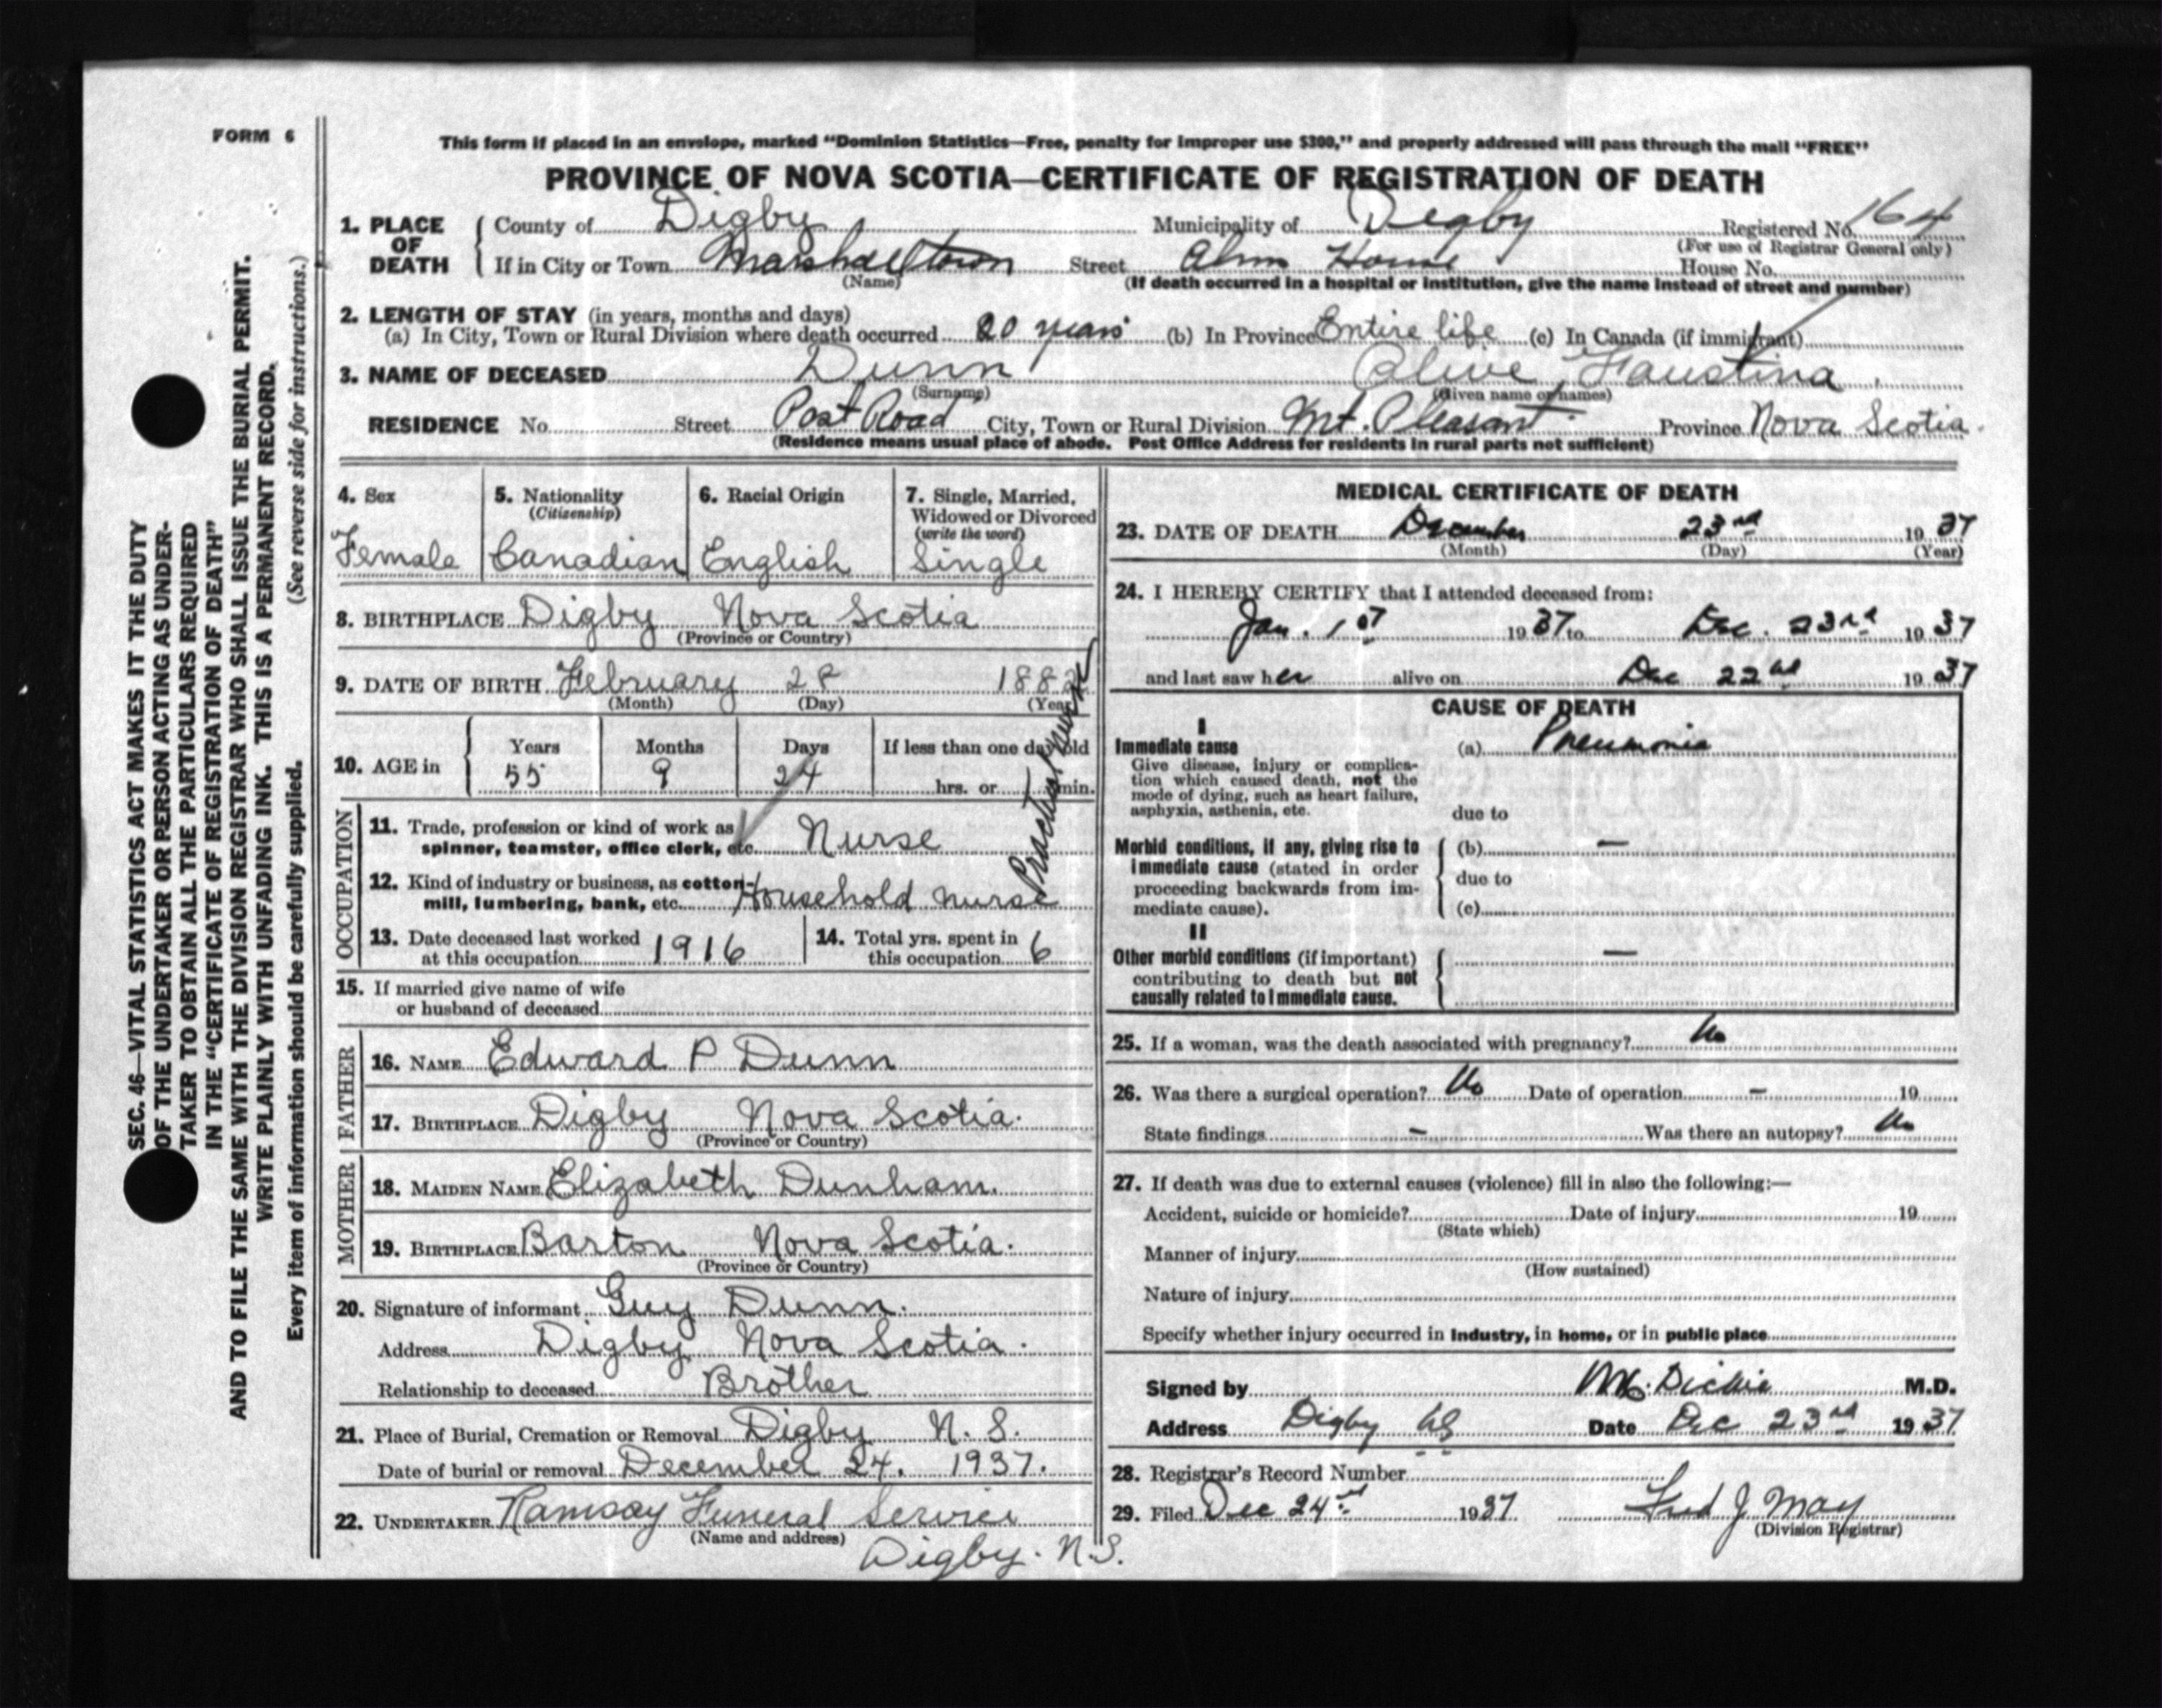 FORM 6
This form if placed in an envelope, marked "Dominion Statistics—Free, penalty for improper use $300," and properly addressed will pass through the mail "FREE"
PROVINCE OF NOVA SCOTIA—CERTIFICATE OF REGISTRATION OF DEATH
1. PLACE OF DEATH County of Digby Municipality of Digby Registered No. 164
(For use of Registrar General only)
If in City or Town Marshalltown Street Alms House House No.
(Name) (If death occurred in a hospital or institution, give the name instead of street and number)
2. LENGTH OF STAY (in years, months and days)
(a) In City, Town or Rural Division where death occurred 20 years (b) In Province Entire life (c) In Canada (if immigrant)
3. NAME OF DECEASED Dunn Olive Faustina
(Surname) (Given name or names)
RESIDENCE No. Street Post Road City, Town or Rural Division Mt. Pleasant Province Nova Scotia.
(Residence means usual place of abode. Post Office Address for residents in rural parts not sufficient)
4. Sex
Female
5. Nationality
(Citizenship)
Canadian
6. Racial Origin
English
7. Single, Married,
Widowed or Divorced
(write the word)
Single
8. BIRTHPLACE Digby Nova Scotia
(Province or Country)
9. DATE OF BIRTH February 28 1882
(Month) (Day) (Year)
10. AGE in Years Months Days If less than one day old
55 9 24 hrs. or min.
OCCUPATION
11. Trade, profession or kind of work as
spinner, teamster, office clerk, etc. Nurse
12. Kind of industry or business, as cotton-
mill, lumbering, bank, etc. Household nurse
13. Date deceased last worked
at this occupation 1916
14. Total yrs. spent in
this occupation 6
15. If married give name of wife
or husband of deceased
FATHER
16. NAME Edward P Dunn
17. BIRTHPLACE Digby Nova Scotia.
(Province or Country)
MOTHER
18. MAIDEN NAME Elizabeth Dunham.
19. BIRTHPLACE Barton Nova Scotia.
(Province or Country)
20. Signature of informant Guy Dunn.
Address Digby Nova Scotia.
Relationship to deceased Brother
21. Place of Burial, Cremation or Removal Digby N. S.
Date of burial or removal December 24. 1937.
22. UNDERTAKER Ramsay Funeral Service
(Name and address)
Digby. N.S.
MEDICAL CERTIFICATE OF DEATH
23. DATE OF DEATH December 23rd 1937
(Month) (Day) (Year)
24. I HEREBY CERTIFY that I attended deceased from:
Jan. 1st 1937 to Dec. 23rd 1937
and last saw her alive on Dec 22nd 1937
CAUSE OF DEATH
I
Immediate cause (a) Pneumonia
Give disease, injury or complica-
tion which caused death, not the
mode of dying, such as heart failure,
asphyxia, asthenia, etc. due to
Morbid conditions, if any, giving rise to (b) —
immediate cause (stated in order
proceeding backwards from im- due to
mediate cause). (c)
II
Other morbid conditions (if important) —
contributing to death but not
causally related to immediate cause.
25. If a woman, was the death associated with pregnancy? No
26. Was there a surgical operation? No Date of operation – 19
State findings – Was there an autopsy? No
27. If death was due to external causes (violence) fill in also the following:—
Accident, suicide or homicide? Date of injury 19
(State which)
Manner of injury
(How sustained)
Nature of injury
Specify whether injury occurred in industry, in home, or in public place
Signed by Dickie M.D.
Address Digby NS Date Dec 23rd 1937
28. Registrar's Record Number
29. Filed Dec 24 1937 Fred J May
(Division Registrar)
SEC. 46—VITAL STATISTICS ACT MAKES IT THE DUTY
OF THE UNDERTAKER OR PERSON ACTING AS UNDER-
TAKER TO OBTAIN ALL THE PARTICULARS REQUIRED
IN THE "CERTIFICATE OF REGISTRATION OF DEATH"
AND TO FILE THE SAME WITH THE DIVISION REGISTRAR WHO SHALL ISSUE THE BURIAL PERMIT.
WRITE PLAINLY WITH UNFADING INK. THIS IS A PERMANENT RECORD.
Every item of information should be carefully supplied. (See reverse side for instructions.)